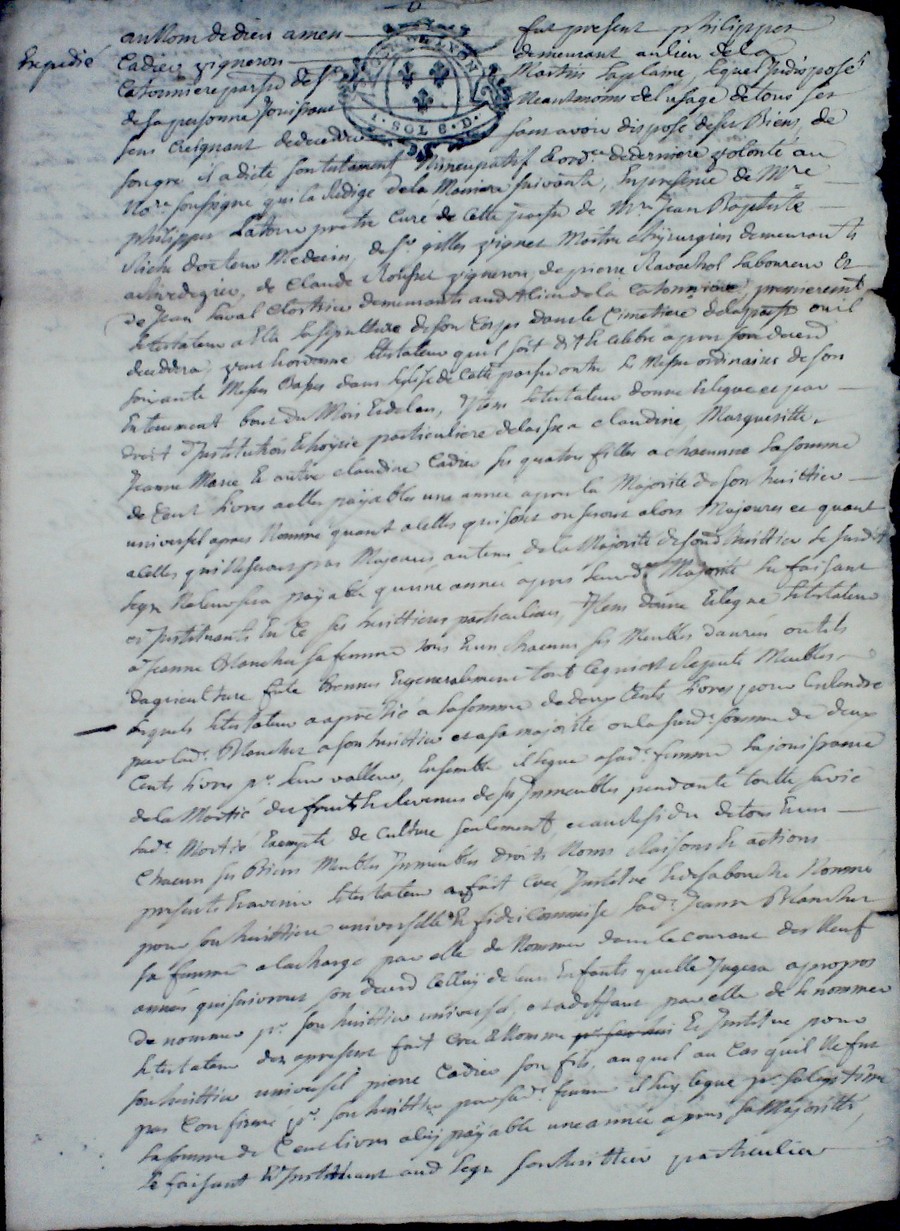 au Nom de dieu amen fut present philippes
Expedié
Cadier vigneron demeurant au lieu de la
Catonniere parsse de St Martin La plaine, lequel Indisposé
de sa personne Jouissant Neantmoins de l'usage de tous ses
sens Creignant de decedder sans avoir disposé de ses Biens, de
son gré il a dicté son testament Nuncupatif & ord.re de derniere volonté au
No.re soussigné qui l'a Redigé de la Maniere suivante, En presence de M.re
philippes Latour pretre Curé de Cette parsse de M.re Jean Baptiste
docteur Medecin, de Sr gilles vignet Maitre chirurgien demeurants
de Claude vigneron, de pierre Ravachol Laboureur Et
de Jean Laval demeurants aud. lieu de la Catonniere premierement
le testateur a Elû la sepulture de son Corps dans le Cimetiere de la parsse ou il
deceddera, veut & ordonne le testateur quil soit dit & celebré apres son deced
soixante Messes Basses dans l'Eglise de Cette parsse outre les Messes ordinaires de son
Enterement bout du Mois & de l'an, Item le testateur donne & legue et par
droit d'Institution & hoyrie particuliere delaisse a claudine, Margueritte,
Jeanne Marie & autre claudine Cadier ses quatre filles a chacunne la somme
de Cent livres a elles payables une année apres la Majorité de son heritier
universel apres Nommé quant a celles qui sont ou seront alors Majeures et quant
a celles qui Ne seront pas Majeures au tems de la Majorité de sond. heritier le susdit
legs Ne leur sera payable qu'une année apres leurd.e Majorité les faisant
et Instituants En Ce ses herittieres particulieres, Item donne & legue le testateur
a Jeanne Blancher sa femme tous & un chacuns ses Meubles danrées outils
d'agriculture & generalement tout ce qui est Reputé Meubles
lesquels le testateur a apretié a la somme de deux Cents livres pour En rendre
par lad. Blancher a son herittier et a sa majorité ou la susd.e somme de deux
Cents livres p.r leur valleur, Ensemble il legue a sad.e femme la jouissance
de la Moitié des fruits & Revenus de ses Immeubles pendante toutte sa vie
lad.e Moitié Exempte de Culture seulement, et au Residu de tous & un
Chacun ses Biens Meubles Immeubles droits Noms Raisons & actions
presents & avenir le testateur a fait Créé Institué & de sa bouche Nommé
pour son herittiere universelle & fideicommise lad.e Jeanne Blancher
sa femme a la charge par elle de Nommer dans le courant des Neuf
années qui suivront son deced Celluy de leurs Enfants quelle Jugera apropos
de nommer p.r son herittier universel, et a deffaut par elle de le nommer
le testateur dez apresent fait Créé & Nomme & Institue pour
son herittier universel pierre Cadier son fils, auquel au Cas quil Ne fut
pas Confirmé p.r son herittier par sad.e femme il luy legue p.r sa legitime
la somme de Cent livres a luy payable une année apres sa Majorité,
le faisant & Instituant aud. legs son herittier particulier